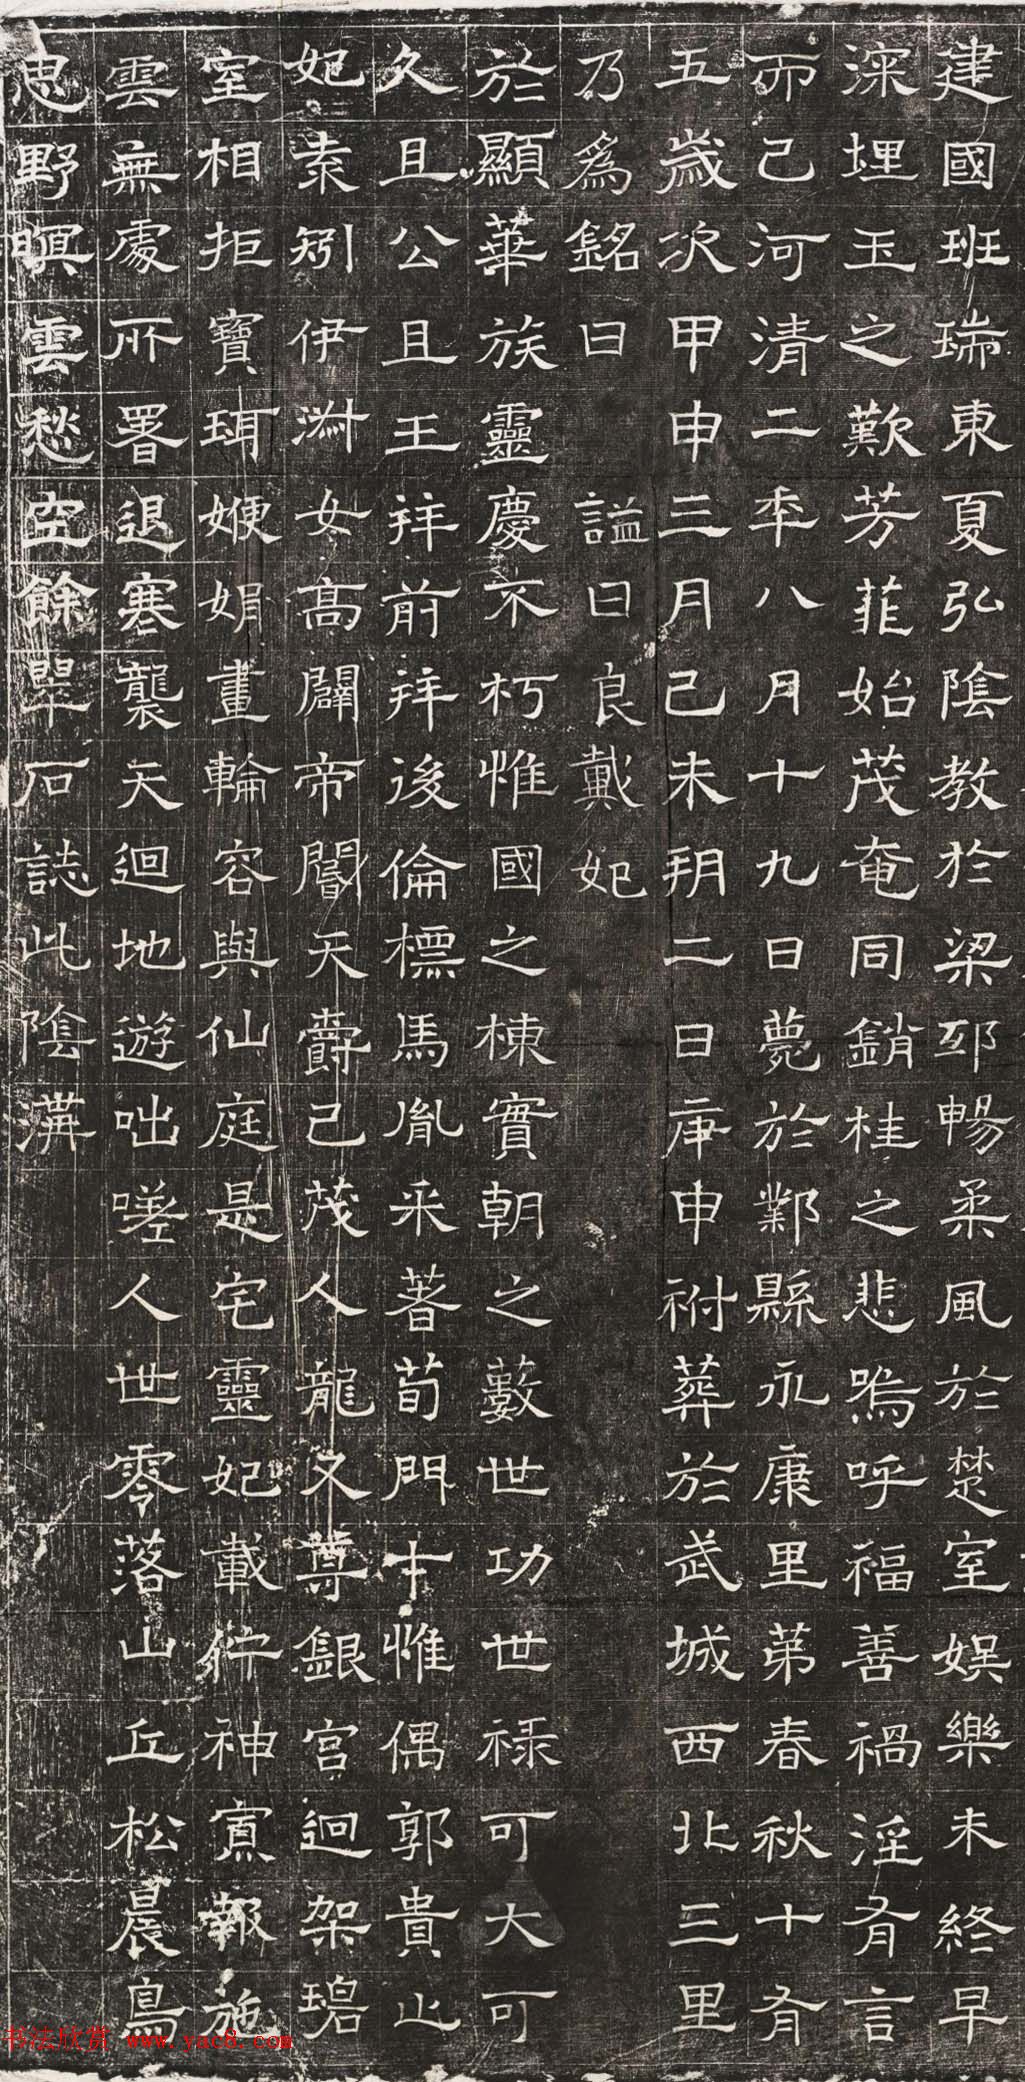 建國班瑞東夏弘陰教於梁邳暢柔風於楚室娛樂未終早
深埋玉之歎芳菲始茂奄同銷桂之悲嗚呼福善禍淫有言
而已河清二年八月十九日薨於鄴縣永康里第春秋十有
五歲次甲申三月己未朔二日庚申祔葬於武城西北三里
乃為銘曰 謚曰良戴妃
於顯華族靈慶不朽惟國之棟實朝之藪世功世祿可大可
久且公且王拜前拜後倫標馬胤采著荀門十惟偶郭貴止
妃袁矧伊淋女高闢帝閽天爵己茂人龍又尊銀宮迥架碧
室相拒寶珥婹娟畫輪容與仙庭是宅靈妃載佇神寘報施
雲無處所暑退寒襲天迴地遊咄嗟人世零落山丘松晨鳥
思野暝雲愁空餘翠石誌此陰溝
书法欣赏 www.yac8.com